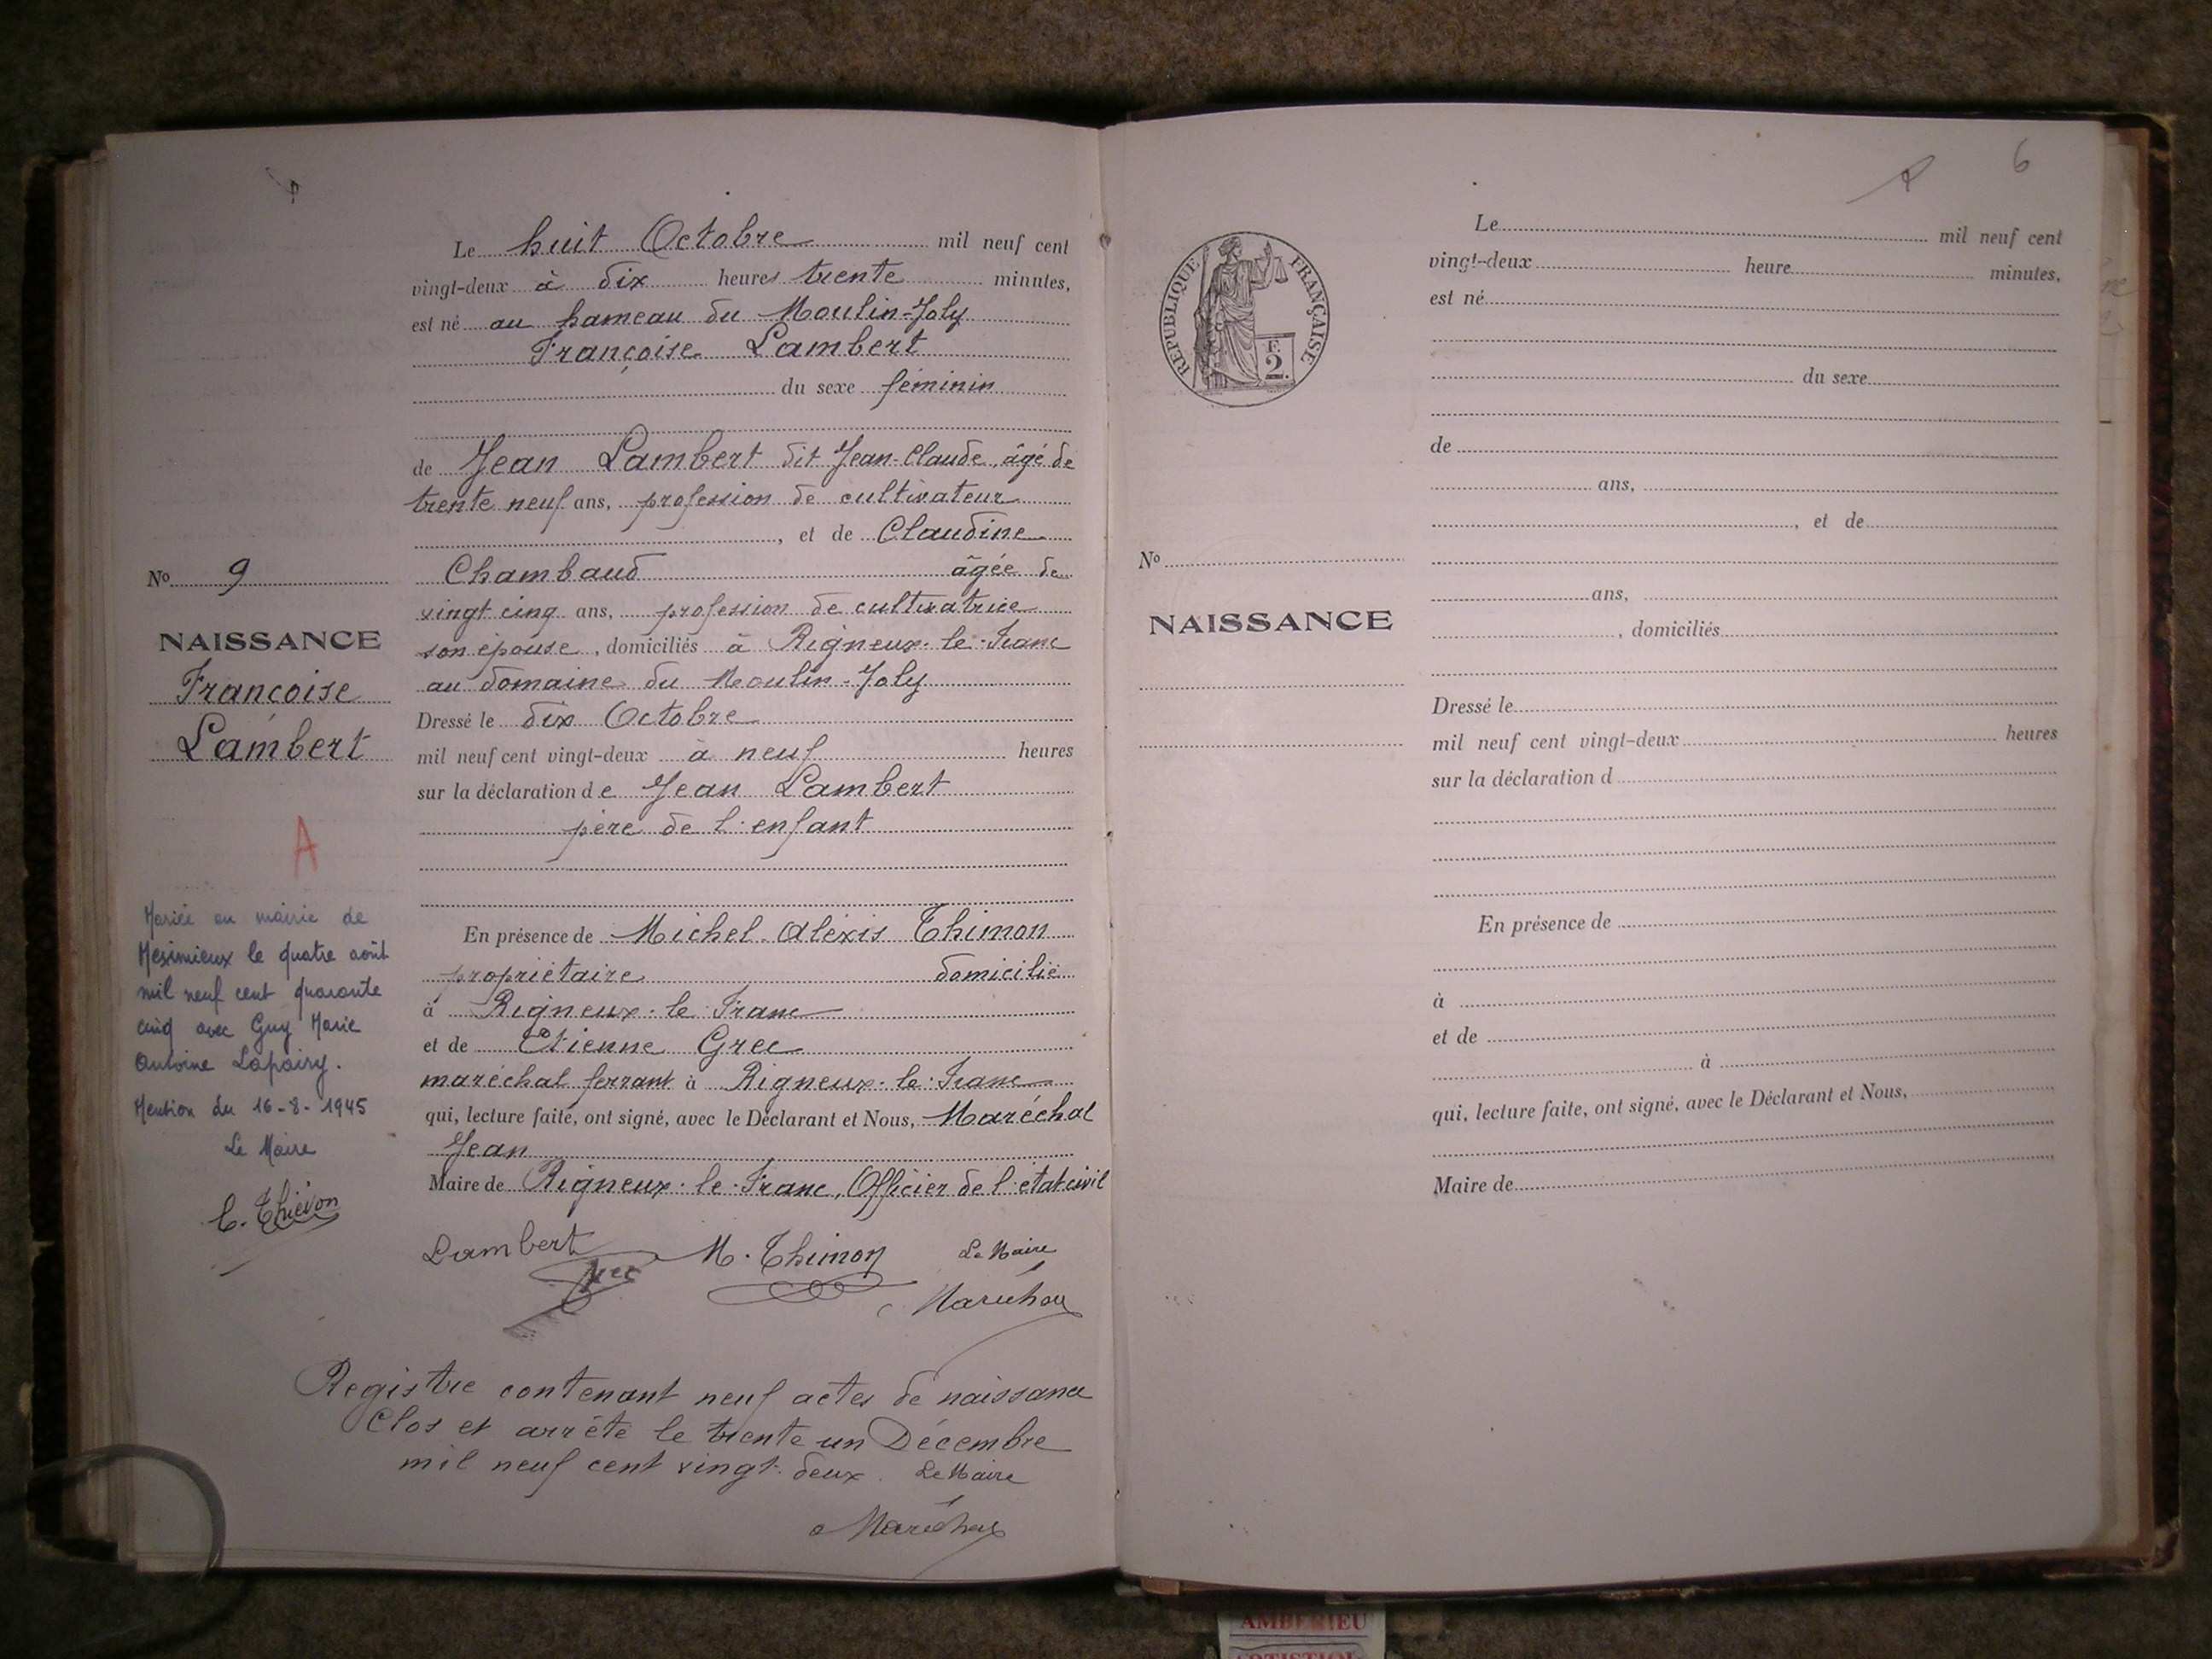 Le huit Octobre mil neuf cent
vingt-deux à dix heures trente minutes,
est né au hameau du Moulin-Joly
Françoise Lambert
du sexe féminin
de Jean Lambert dit Jean-Claude, âgé de
trente neuf ans, profession de cultivateur
, et de Claudine
Chambaud âgée de
vingt cinq ans, profession de cultivatrice
son épouse, domiciliés à Rigneux-le-Franc
au domaine du Moulin-Joly
Dressé le dix Octobre
mil neuf cent vingt-deux à neuf heures
sur la déclaration de Jean Lambert
père de l'enfant
En présence de Michel Aléxis Thimon
propriétaire domicilié
à Rigneux-le-Franc
et de Etienne Grec
maréchal ferrant à Rigneux-le-Franc
qui, lecture faite, ont signé, avec le Déclarant et Nous, Maréchal
Jean
Maire de Rigneux-le-Franc, Officier de l'état civil
Lambert M. Thimon Le Maire
Grec
Maréchal
N° 9
NAISSANCE
Françoise
Lambert
A
Mariée en mairie de
Meximieux le quatre août
mil neuf cent quarante
cinq avec Guy Marie
Antoine Lapairy.
Mention du 16-8-1945
Le Maire
C. Thiévon
Registre contenant neuf actes de naissance
Clos et arrêté le trente un Décembre
mil neuf cent vingt-deux. Le Maire
Maréchal
6
REPUBLIQUE FRANÇAISE
F.
2.
Le mil neuf cent
vingt-deux heure minutes,
est né
du sexe
de
ans,
, et de
ans,
, domiciliés
Dressé le
mil neuf cent vingt-deux heures
sur la déclaration d
En présence de
à
et de
à
qui, lecture faite, ont signé, avec le Déclarant et Nous,
Maire de
N°
NAISSANCE
AMBERIEU